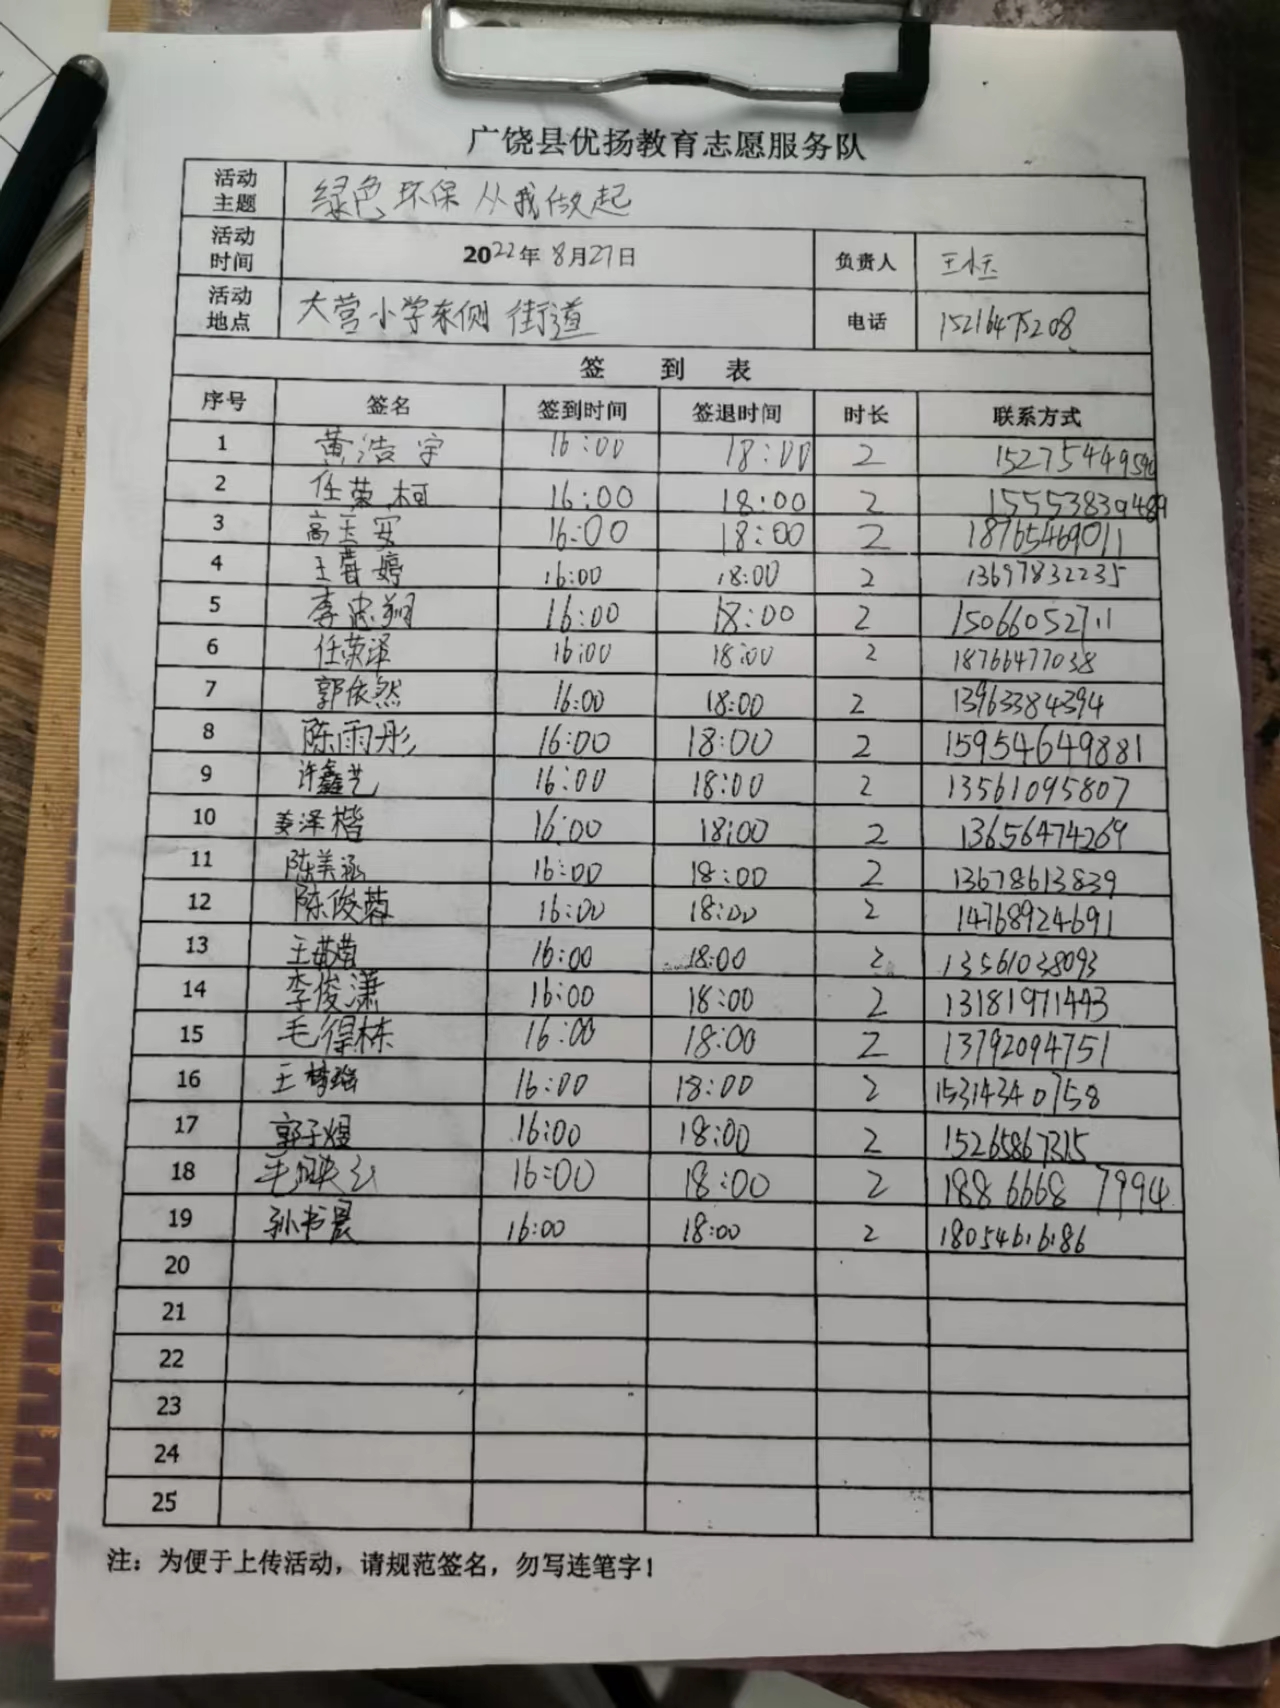 广饶县优扬教育志愿服务队
活动主题 绿色环保 从我做起
活动时间 2022年8月27日 负责人 王
活动地点 大营小学东侧 街道 电话 15216475208
签 到 表
序号 签名 签到时间 签退时间 时长 联系方式
1 黄浩宇 16:00 18:00 2
2 任荣柯 16:00 18:00 2 15553839489
3 高玉安 16:00 18:00 2 18765469011
4 王 婷 16:00 18:00 2 13697832235
5 李忠翔 16:00 18:00 2 15066052711
6 任荣泽 16:00 18:00 2 18766477038
7 郭依然 16:00 18:00 2 13963384394
8 陈雨彤 16:00 18:00 2 15954649881
9 许鑫艺 16:00 18:00 2 13561095807
10 姜泽楷 16:00 18:00 2 13656474269
11 陈美涵 16:00 18:00 2 13678613839
12 陈俊蓉 16:00 18:00 2 14768924691
13 王 16:00 18:00 2 13561038093
14 李俊潇 16:00 18:00 2 13181971443
15 毛得栋 16:00 18:00 2 13792094751
16 王梦瑶 16:00 18:00 2 15314340758
17 郭子嫚 16:00 18:00 2 15265867315
18 毛 16:00 18:00 2 188 6668 7994
19 孙书晨 16:00 18:00 2 18054616186
20
21
22
23
24
25
注：为便于上传活动，请规范签名，勿写连笔字！